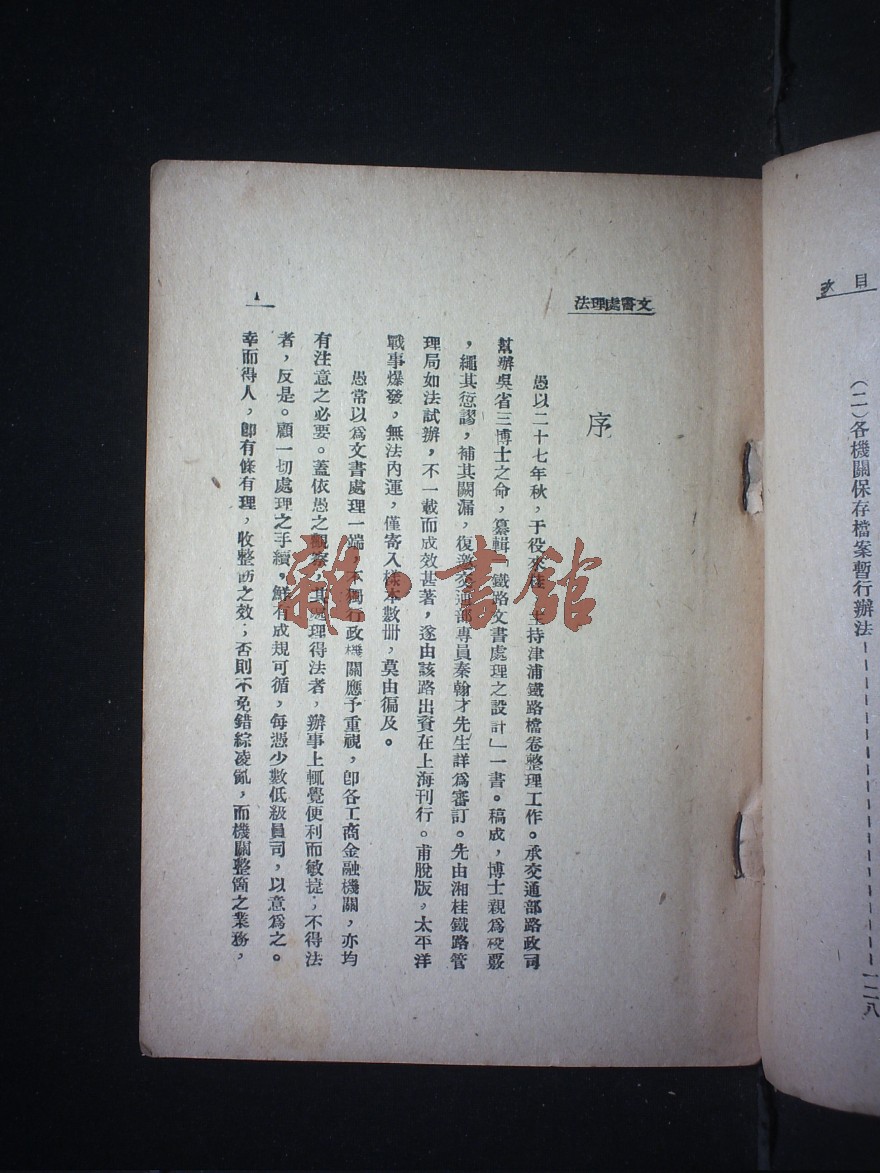 目
(二)各機關保存檔案暫行辦法 一二八
文書處理法
序
愚以二十七年秋,于役來桂,主持津浦鐵路檔卷整理工作。承交通部路政司
幫辦吳省三博士之命,纂輯「鐵路文書處理之設計」一書。稿成,博士親爲覈
,繩其愆謬,補其闕漏,復邀交通部專員秦翰才先生詳爲審訂。先由湘桂鐵路管
理局如法試辦,不一載而成效甚著,遂由該路出資在上海刊行。甫脫版,太平洋
戰事爆發,無法內運,僅寄入樣本數冊,莫由徧及。
愚常以爲文書處理一端,不獨行政機關應予重視,卽各工商金融機關,亦均
有注意之必要。蓋依愚之觀察,其處理得法者,辦事上輒覺便利而敏捷;不得法
者,反是。顧一切處理之手續,鮮有成規可循,每憑少數低級員司,以意爲之。
幸而得人,卽有條有理,收整飭之效;否則不免錯綜凌亂,而機關整箇之業務,
雜·書館